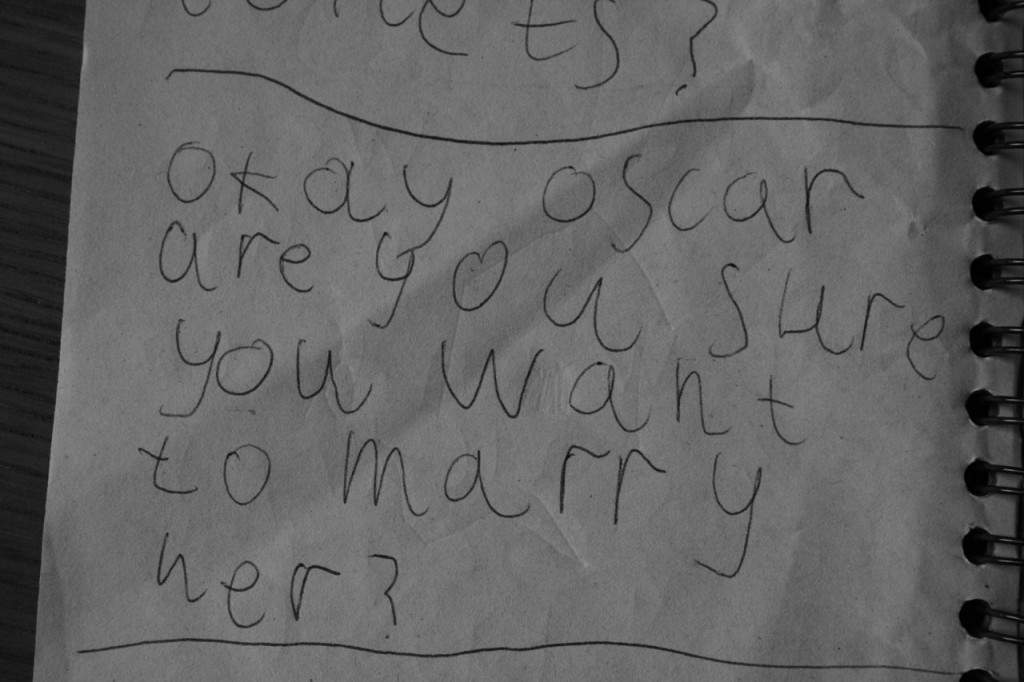 okay oscar
are you sure
you want
to marry
her?